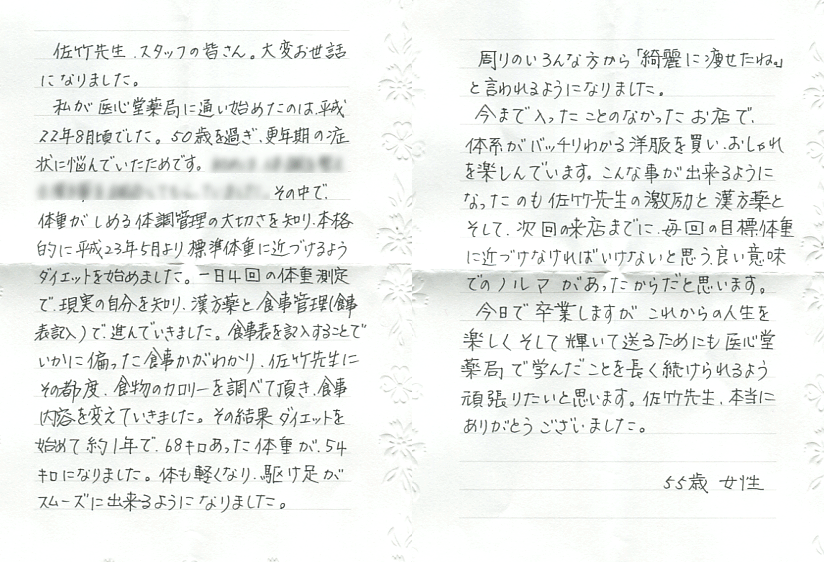 佐竹先生、スタッフの皆さん。大変お世話
になりました。
私が医心堂薬局に通い始めたのは、平成
22年8月頃でした。50歳を過ぎ、更年期の症
状に悩んでいたためです。
その中で、
体重がしめる体調管理の大切さを知り、本格
的に平成23年5月より標準体重に近づけるよう
ダイエットを始めました。一日4回の体重測定
で、現実の自分を知り、漢方薬と食事管理(食事
表記入)で、進んでいきました。食事表を記入することで
いかに偏った食事かがわかり、佐竹先生に
その都度、食物のカロリーを調べて頂き、食事
内容を変えていきました。その結果ダイエットを
始めて約1年で、68キロあった体重が、54
キロになりました。体も軽くなり、駆け足が
スムーズに出来るようになりました。
周りのいろんな方から「綺麗に痩せたね。」
と言われるようになりました。
今まで入ったことのなかったお店で、
体系がバッチリわかる洋服を買い、おしゃれ
を楽しんでいます。こんな事が出来るように
なったのも佐竹先生の激励と漢方薬と
そして、次回の来店までに、毎回の目標体重
に近づけなければいけないと思う、良い意味
でのノルマがあったからだと思います。
今日で卒業しますが これからの人生を
楽しくそして輝いて送るためにも医心堂
薬局で学んだことを長く続けられるよう
頑張りたいと思います。佐竹先生、本当に
ありがとうございました。
55歳 女性